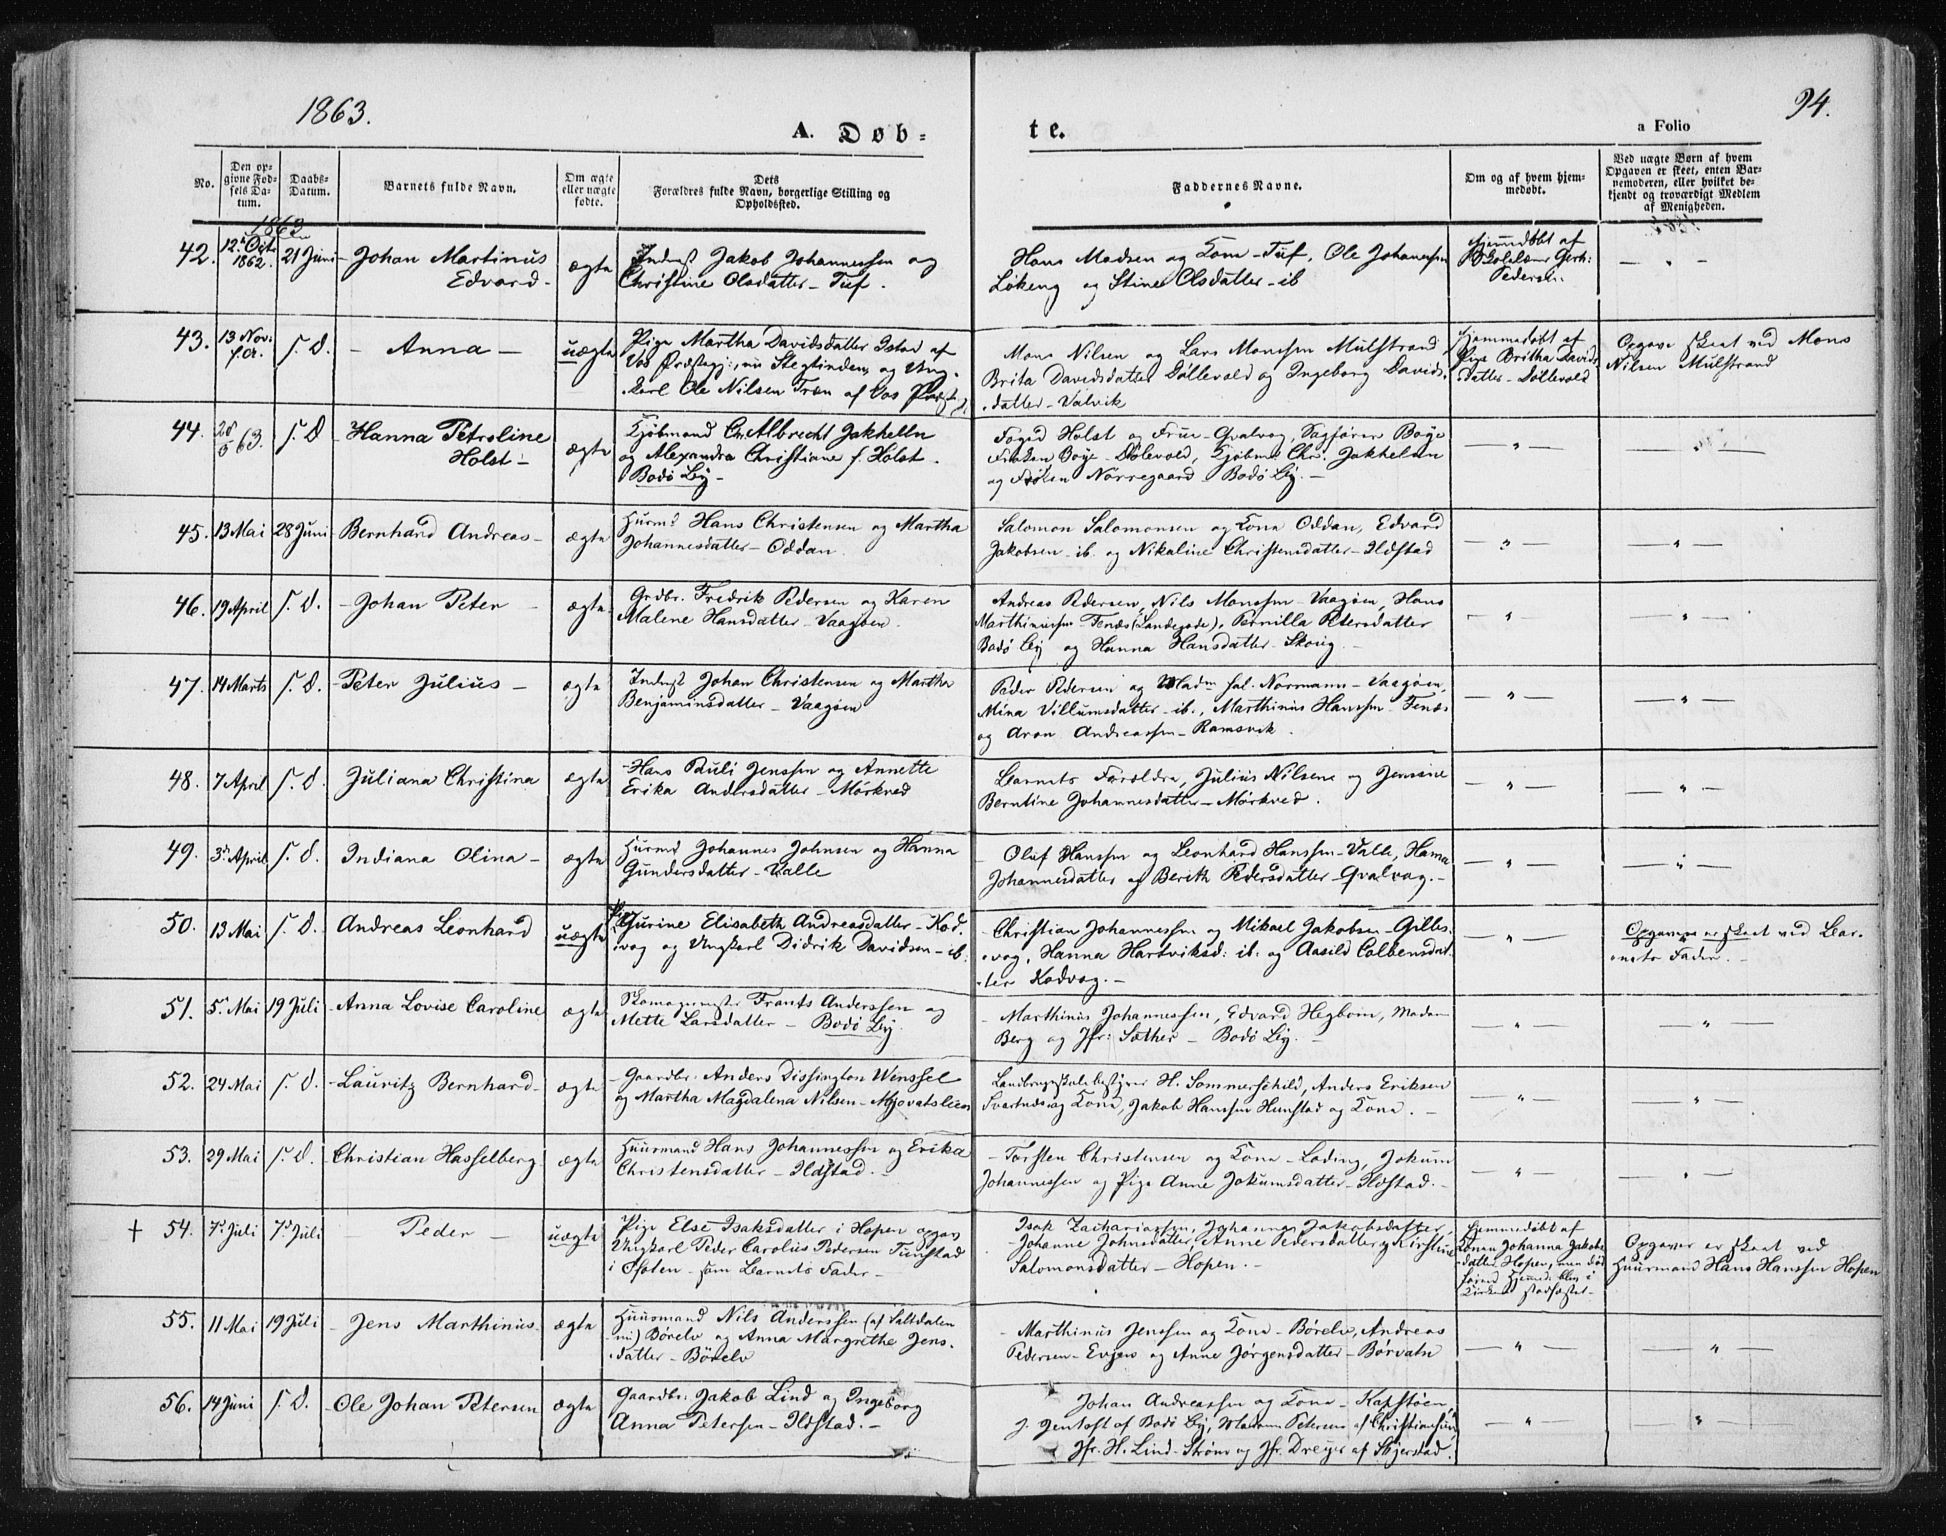 1863.
94.
A. Døb-
te.
a Folio
No.
Den op-
givne Fød-
sels Da-
tum.
Daabs-
Datum.
Barnets fulde Navn.
Om ægte
eller uægte
fødte.
Dets
Forældres fulde Navn, borgerlige Stilling og
Opholdssted.
Faddernes Navne.
Om og af hvem hjem-
medøbt.
Ved uægte Børn af hvem
Opgaven er skeet, enten Bar-
nemoderen, eller hvilket be-
kjendt og troværdigt Medlem
af Menigheden.
1863
42. 12t Oct. 1862. 21 Juni - Johan Martinus
Edvard -
ægte
Inderst Jakob Johannessen og
Christine Olsdatter - Tuf.
Hans Madsen og Kone - Tuf, Ole Johannessen
Løkeng og Stine Olsdatter - ib
Hjemdøbt af
Skolelærer Gerh:
Pedersen.
— " —
43. 13 Nov: f. A. s. D. - Anna -
uægte
Pige Martha Davidsdatter Istad af
Vos Præstegj:, nu Stegtinden og Ung-
karl Ole Nilsen Træn af Vos Præstegj
Mons Nilsen og Lars Monssen Mulstrand,
Brita Davidsdatter Døllevold og Ingeborg Davids-
datter - Valvik
Hjemmedøbt af
Pige Britha Davids-
datter - Døllevold
Opgave skeet ved Mons
Nilsen Mulstrand
44. 28/5 63. s. D - Hanna Petroline
Holst -
ægte
Kjøbmand Chr. Albrecht Jakhelln
og Alexandra Christiane f. Holst.
Bodø By -
Foged Holst og Frue - Qvalvog, Sagfører Boye
Frøken Boye - Dølevold, Kjøbmd Chr. Jakhelln
og Frøken Nørregaard - Bodø By. -
— " —
— " —
45. 13 Mai 28 Juni Bernhard Andreas -
ægte
Huurmd Hans Christensen og Martha
Johannesdatter - Oddan.
Salomon Salomonsen og Kone Oddan, Edvard
Jakobsen - ib. og Nikaline Christensdatter - Ildstad
— " —
— " —
46. 19 April s. D. - Johan Peter -
ægte
Grdbr. Fredrik Pedersen og Karen
Malene Hansdatter - Vaagøen.
Andreas Pedersen, Nils Monssen - Vaagøen, Hans
Marthinussen - Fenæs (Landegode), Pernilla Petersdatter
Bodø By og Hanna Hansdatter - Skoug. -
— " —
— " —
47. 14 Marts s. D. - Peter Julius -
ægte
Inderst Johan Christensen og Martha
Benjaminsdatter - Vaagøen
Peder Pedersen og Madm sal. Normann - Vaagøen,
Mina Villumsdatter - ib., Marthinus Hanssen - Fenæs
og Aron Andreassen - Ramsvik.
— " —
— " —
48. 7 April s. D. Juliana Christina
ægte
- Hans Pauli Jenssen og Annette
Erika Andersdatter - Mørkved
Barnets Forældre, Julius Nilsen og Jensine
Berntine Johannesdatter - Mørkved.
— " —
— " —
49. 3d April s. d. Indiana Olina -
ægte
Huurmd Johannes Johnsen og Hanna
Gundersdatter - Valle
- Oluf Hanssen og Leonhard Hanssen - Valle, Hanna
Johannesdatter og Berith Pedersdatter - Qvalvog. -
— " —
— " —
50. 13 Mai s. D. Andreas Leonhard
uægte
Pige Gurine Elisabeth Andreasdatter - Kod-
vog og Ungkarl Didrik Davidsen - ib.
- Christian Johannessen og Mikael Jakobsen - Gilles-
vog, Hanna Hartviksd: ib: og Aasild Colbensdat-
ter Kodvog. -
— " —
Opgaven er skeet ved Bar-
nets Fader. -
51. 5t Mai 19 Juli - Anna Lovise Caroline
ægte
Skomagermester Frants Anderssen og
Mette Larsdatter - Bodø By.
- Marthinus Johannessen, Edvard Hegbom, Madam
Berg og Jfr: Sæther - Bodø By. -
— " —
— " —
52. 24 Mai s. d. - Lauritz Bernhard -
ægte
- Gaardbr: Anders Dissington Wenssel
og Martha Magdalena Nilsen - Mjovatslien
Landbrugsskolebestyrer H. Sommerschild, Anders Eriksen
Svartnes og Kone, Jakob Hanssen Hunstad og Kone. -
— " —
— " —
53. 29 Mai s. D. Christian Hasselberg
ægte
Huurmand Hans Johannessen og Erika
Christensdatter - Ildstad. -
- Torsten Christensen og Kone - Løding, Jokum
Johannessen og Pige Anne Jokumsdatter - Ildstad. -
— " —
— " —
† 54. 7d Juli 7d Juli - Peder -
uægte
Pige Else Isaksdatter i Hopen opgav
Ungkarl Peder Carolius Pedersen Tunstad
i Skjøten - som Barnets Fader -
Isak Zachariassen, Johanna Jakobsdatter,
Johanne Johnsdatter, Anne Pedersdatter og Kirstine
Salomonsdatter - Hopen. -
Hjemmedøbt af
Konen Johanna Jakobs-
datter Hopen, men død
førend Hjemd: blev i
Kirken stadfæstet. -
Opgaver er skeet ved
Huurmand Hans Hanssen Hopen
55. 11 Mai 19 Juli - Jens Marthinus -
ægte
Huusmand Nils Anderssen (af Saltdalen
nu) Børelv og Anna Margrethe Jens-
datter - Børelv
- Marthinus Jenssen og Kone - Børelv, Andreas
Pedersen - Evjen og Anne Jørgensdatter - Børvatn
— " —
— " —
56. 14 Juni s. D. - Ole Johan Petersen
ægte
Gaardbr: Jakob Lind og Ingeborg
Anna Petersen - Ildstad. -
Johan Andreassen og Kone - Kapstøen,
J. Jentoft af Bodø By, Madam Petersen af Christiansund,
Jfr. H. Lind - Strøm og Jfr. Dreyer af Skjerstad.
— " —
"